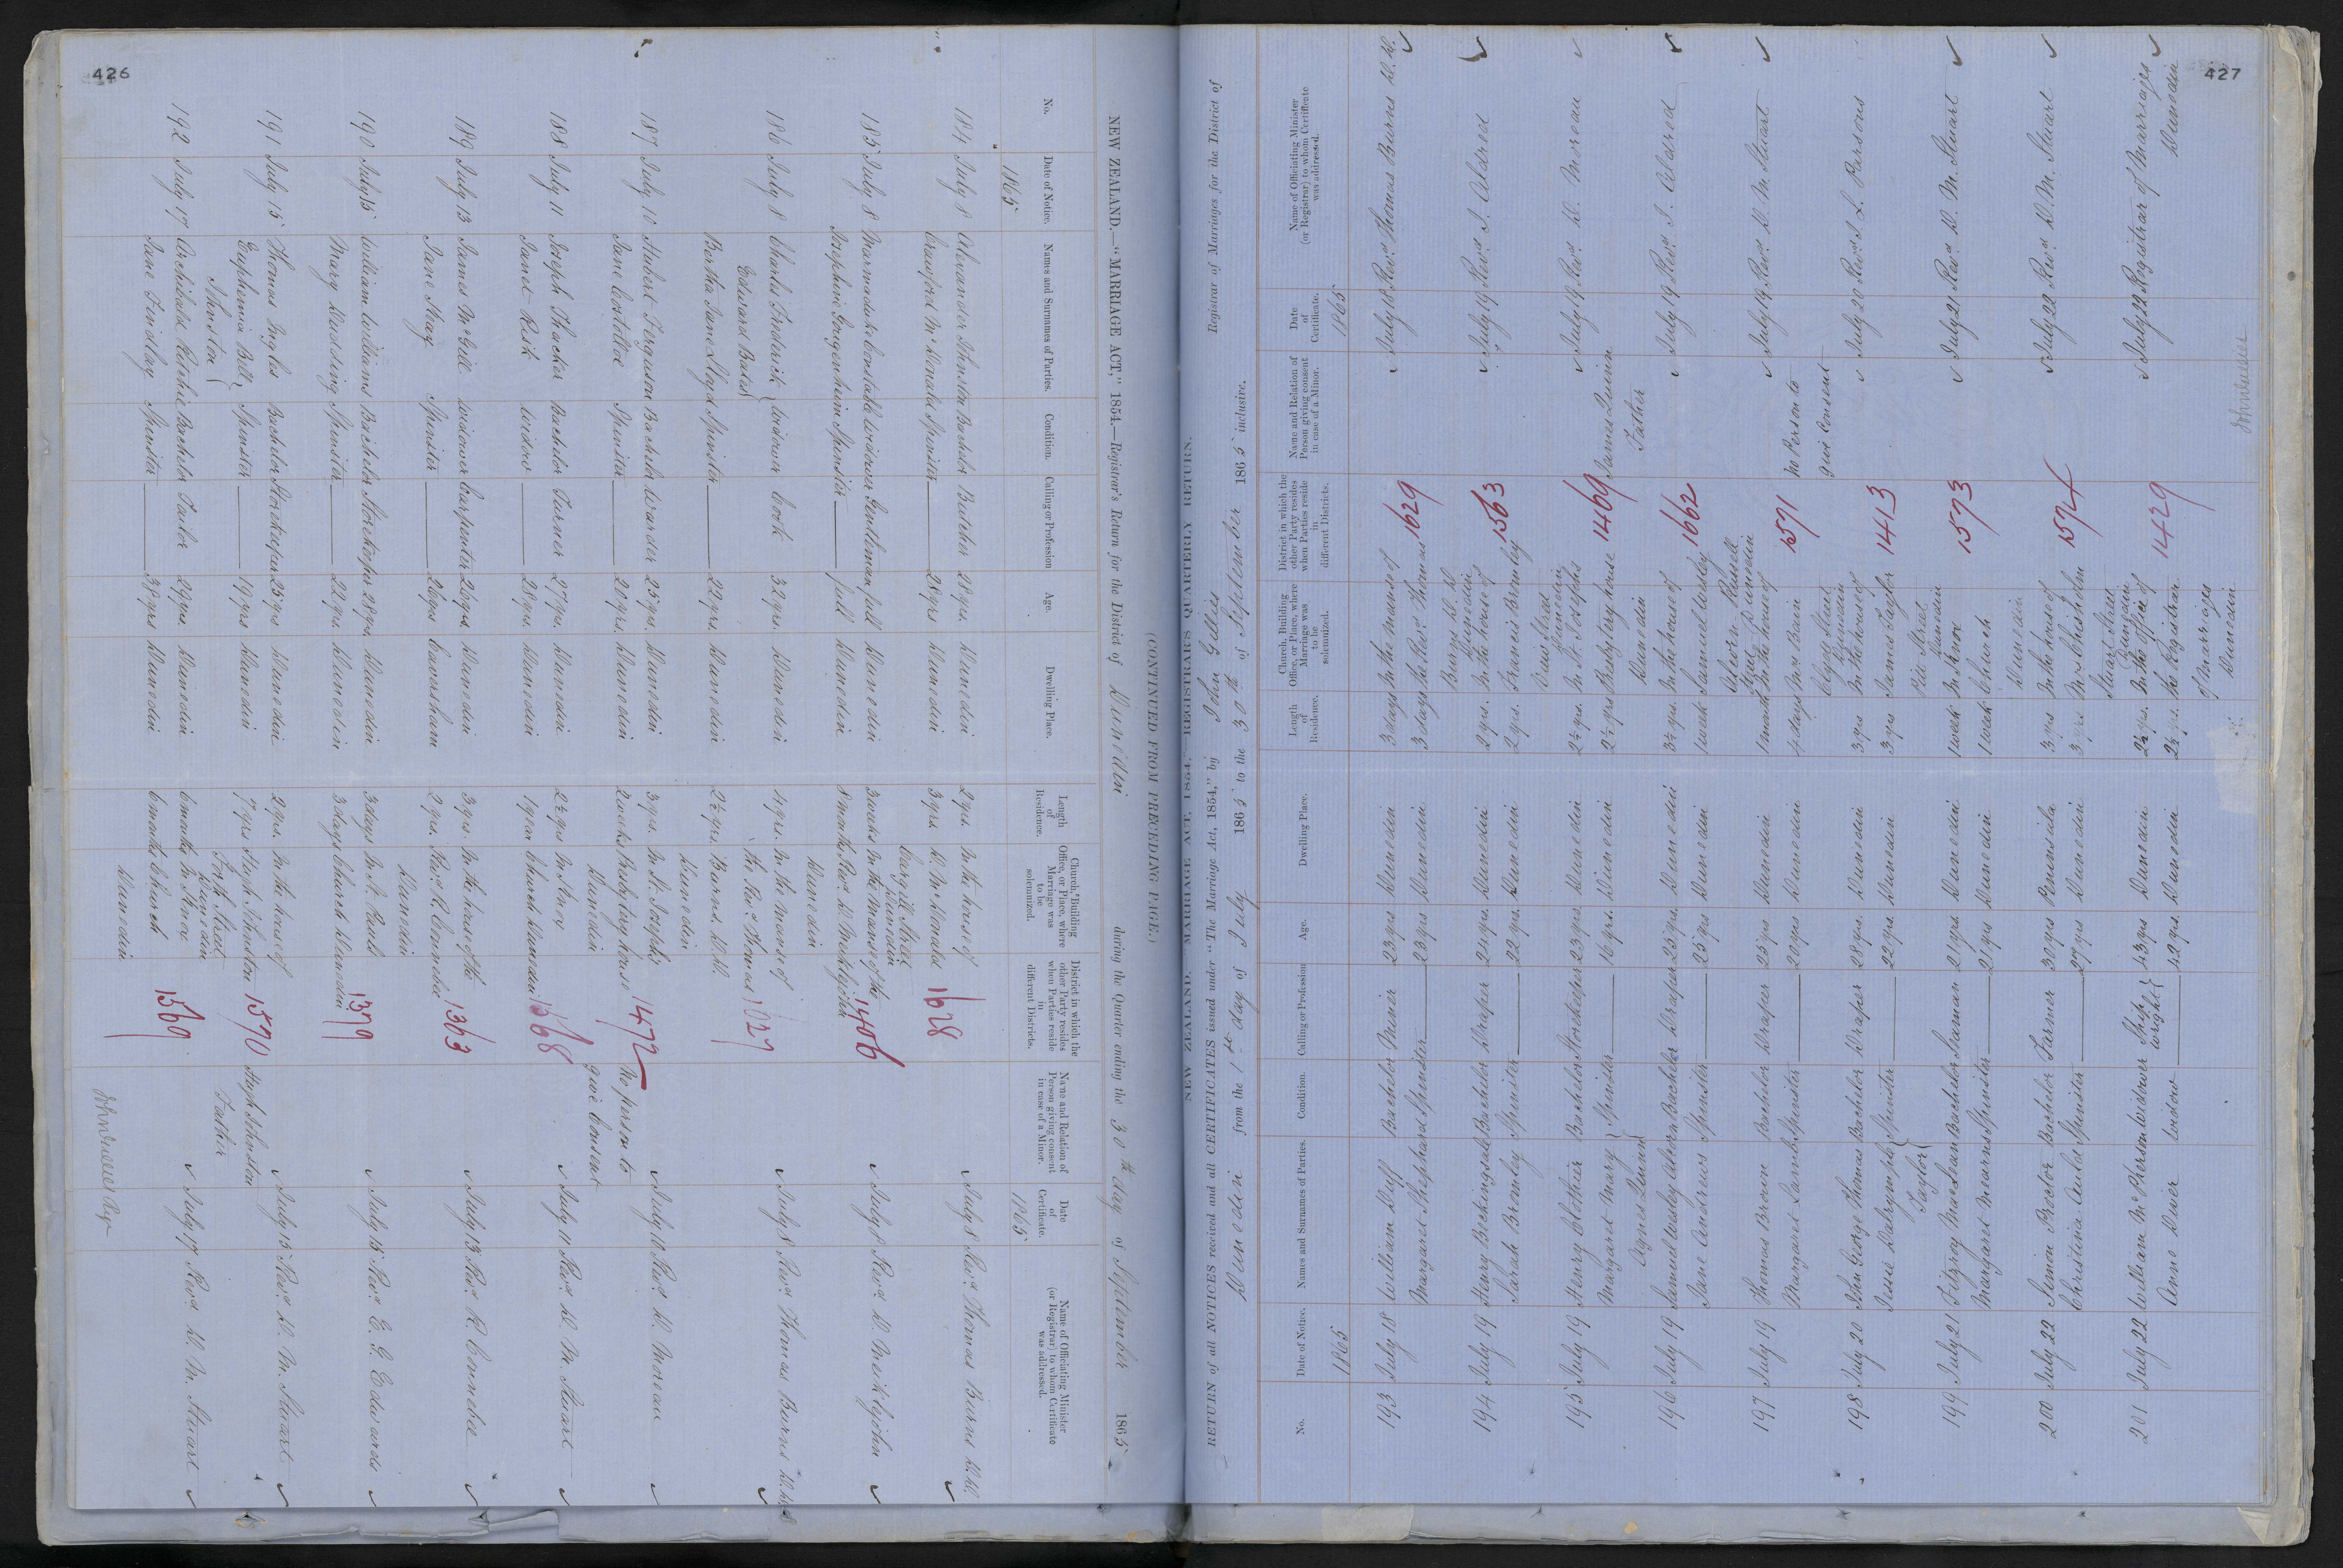 426
(CONTINUED FROM PRECEDING PAGE.)
NEW ZEALAND.—"MARRIAGE ACT," 1854.—Registrar's Return for the District of Dunedin during the Quarter ending the 30th day of September 1865
No. Date of Notice. Names and Surnames of Parties. Condition. Calling or Profession Age. Dwelling Place. Length of Residence. Church, Building Office, or Place, where Marriage was to be solemnized. District in which the other Party resides when Parties reside in different Districts. Name and Relation of Person giving consent in case of a Minor. Date of Certificate. Name of Officiating Minister (or Registrar) to whom Certificate was addressed.
1865 1865
184 July 8 Alexander Johnston Bachelor Butcher 28 yrs. Dunedin 2 yrs. In the house of 1628 July 8 Revd. Thomas Burns D.D.
Crawford McDonald Spinster 28 yrs Dunedin 3 yrs. D. McDonald
Cargill Street
Dunedin
185 July 8 Marmaduke Constable Widower Gentleman full Dunedin 3 weeks In the Manse of the 1406 July 8 Revd. D. Meiklejohn
Josephine Gorgenheim Spinster full Dunedin 8 months Revd. D. Meiklejohn
Dunedin
186 July 8 Charles Frederick Widower Cook 32 yrs. Dunedin 4 yrs. In the manse of 1027 July 8 Revd. Thomas Burns D.D.
Edward Bates
Bertha Jane Lloyd Spinster 22 yrs. Dunedin 2½ yrs. the Revd. Thomas
Burns D.D.
Dunedin
187 July 10 Hubert Ferguson Bachelor Warder 25 yrs. Dunedin 3 yrs. In St. Josephs 1472 No person to July 10 Revd. D. Moreau
Jane Costelloe Spinster 20 yrs. Dunedin 2 weeks Presbytery house give Consent
Dunedin
188 July 11 Joseph Thacker Bachelor Turner 27 yrs. Dunedin 2½ yrs In Knox 1568 July 11 Revd. D. M. Stuart
Janet Risk Widow 28 yrs. Dunedin 1 year Church Dunedin
189 July 13 James McGill Widower Carpenter 26 yrs. Dunedin 3 yrs. In the house of the 1363 July 13 Revd. R. Connebee
Jane Hay Spinster 26 yrs Caversham 2 yrs. Revd. R. Connebee
Dunedin
190 July 15 William Williams Bachelor Storekeeper 28 yrs. Dunedin 3 days In St. Pauls 1379 July 15 Revd. E. G. Edwards
Mary Spinster 22 yrs. Dunedin 3 days Church Dunedin
191 July 15 Thomas Ingles Bachelor Storekeeper 25 yrs Dunedin 2 yrs. In the house of 1570 Hugh Johnston July 15 Revd. D. M. Stuart
Euphemia Bell Spinster 19 yrs Dunedin 7 yrs Hugh Johnston Father
Johnston Forth Street
Dunedin
192 July 17 Archibald Ritchie Bachelor Tailor 29 yrs. Dunedin 6 months In Knox 1569 July 17 Revd. D. M. Stuart
Jane Findlay Spinster 38 yrs Dunedin 6 months Church
Dunedin
John Gillies Rgr
427
NEW ZEALAND.—MARRIAGE ACT, 1854.—REGISTRAR'S QUARTERLY RETURN.
RETURN of all NOTICES received and all CERTIFICATES issued under "The Marriage Act, 1854," by John Gillies Registrar of Marriages for the District of
Dunedin from the 1st day of July 1865 to the 30th of September 1865 inclusive.
No. Date of Notice. Names and Surnames of Parties. Condition. Calling or Profession Age. Dwelling Place. Length of Residence. Church, Building Office, or Place, where Marriage was to be solemnized. District in which the other Party resides when Parties reside in different Districts. Name and Relation of Person giving consent in case of a Minor. Date of Certificate. Name of Officiating Minister (or Registrar) to whom Certificate was addressed.
1865 1865
193 July 18 William Duff Bachelor Miner 23 yrs Dunedin 3 days In the Manse of 1629 July 18 Revd. Thomas Burns D.D.
Margaret Shephard Spinster 23 yrs Dunedin 3 days the Revd. Thomas
Burns D.D.
Dunedin
194 July 19 Henry Beckingsale Bachelor Draper 24 yrs. Dunedin 2 yrs. In the house of 1563 July 19 Revd. I. Aldred
Sarah Bromley Spinster 22 yrs. Dunedin 2 yrs. Francis Bromley
Street
Dunedin
195 July 19 Henry Clothier Bachelor Storekeeper 23 yrs. Dunedin 2½ yrs. In St. Josephs 1469 James Quinn July 19 Revd. D. Moreau
Margaret Mary Spinster 16 yrs. Dunedin 2½ yrs Presbytery house Father
Agnes Quinn Dunedin
196 July 19 Samuel Wesley Aldren Bachelor Draper 25 yrs. Dunedin 3½ yrs. In the house of 1662 July 19 Revd. I. Aldred
Jane Andrews Spinster 25 yrs Dunedin 1 week Samuel Wesley
Russell
Street Dunedin
197 July 19 Thomas Brown Bachelor Draper 25 yrs Dunedin 1 month In the house of 1571 No Person to July 19 Revd. D. M. Stuart
Margaret Lamb Spinster 20 yrs Dunedin 4 days Mrs Bain give Consent
Clyde Street
Dunedin
198 July 20 John George Thomas Bachelor Draper 28 yrs. Dunedin 3 yrs In the house of 1413 July 20 Revd. J. L. Parsons
Jessie Dalrymple Spinster 22 yrs. Dunedin 3 yrs James Taylor
Taylor Pitt Street
Dunedin
199 July 21 Fitzroy MacLean Bachelor Seaman 21 yrs. Dunedin 1 week In Knox 1573 July 21 Revd. D. M. Stuart
Margaret Mearns Spinster 21 yrs Dunedin 1 week Church
Dunedin
200 July 22 Simon Proctor Bachelor Farmer 30 yrs Peninsula 3 yrs In the house of 1574 July 22 Revd. D. M. Stuart
Christina Auld Spinster 27 yrs Dunedin 3 yrs Mr Chisholm
Stuart Street
Dunedin
201 July 22 William McPherson Widower Ship wright 43 yrs Dunedin 2½ yrs. In the office of 1429 July 22 Registrar of Marriages
Anne Dwier Widow 42 yrs. Dunedin 2½ yrs. the Registrar Dunedin
of Marriages
Dunedin
John Gillies